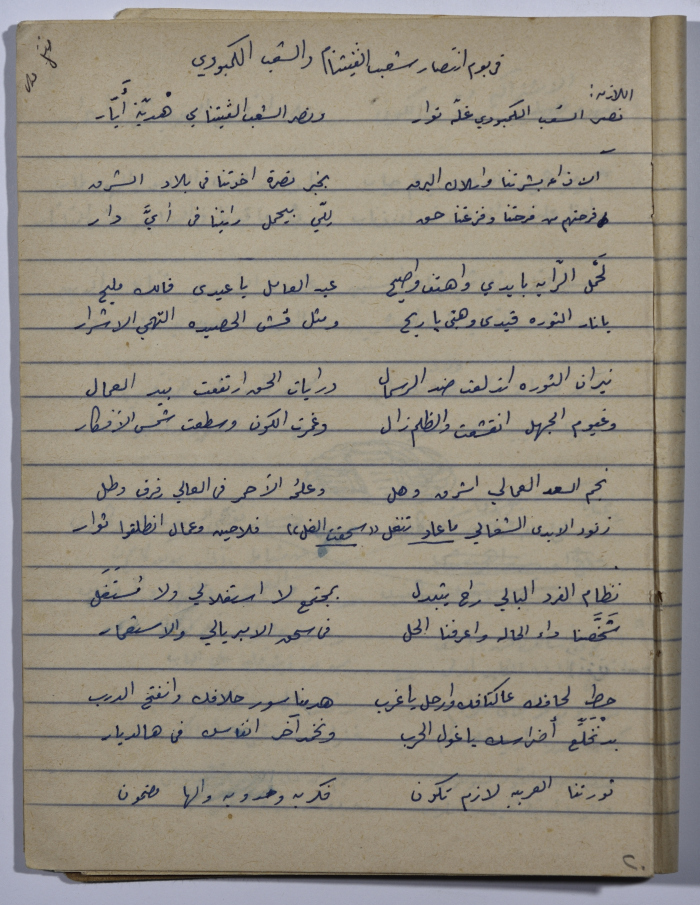 في يوم انتصار شعب الڤيتنام والشعب الكمبودي
اللازمة:
نصر الشعب الكمبودي غلّة نوار ونصر الشعب الڤيتنامي هْديّة أيّار
آلانذاعه بشرتنا واسلاك البرق بخبر نصرة اخوتنا في بلاد الشرق
فرحتهم من فرحتنا وفزعتنا حق للّي بيحمل رايتنا في أيّ دار
لَحْمل الرّايه بايدي واهتف واصيح عيد العامل يا عيدي فالك مليح
يا نار الثوره قيدي وهبّي يا ريح ومثل قش الحصيده التهمي الاشرار
نيران الثوره اندلعت ضد الرسمال ورايات الحق ارتفعت بيد العمال
وغيوم الجهل انقشعت والظلم زال وغمرت الكون وسطعت شمس الأفكار
نجم السعد العمالي اشرق وهل وعلمُه الأحمر في العالي رفرف وطل
زنود الايدي الشغالي ما عاد تنغل «سحقت الغل» فلاحين وعمال انطلقوا ثوار
نظام الفرد البالي راح يتبدل بمجتمع لا استغلالي ولا مُستَغَل
شَخَّصنا داء الحاله واعرفنا الحل في سحق الامبريالي والاستعمار
حط لحافك عا كتافك وارحل يا غرب هدينا سور حلافك وانفتح الدرب
بدنْخَلّع أضراسك يا غول الحرب ونخمد آخر انفاسك في هالديار
ثورتنا العربيه لازم تكون فكريه وحدويه والها مضمون